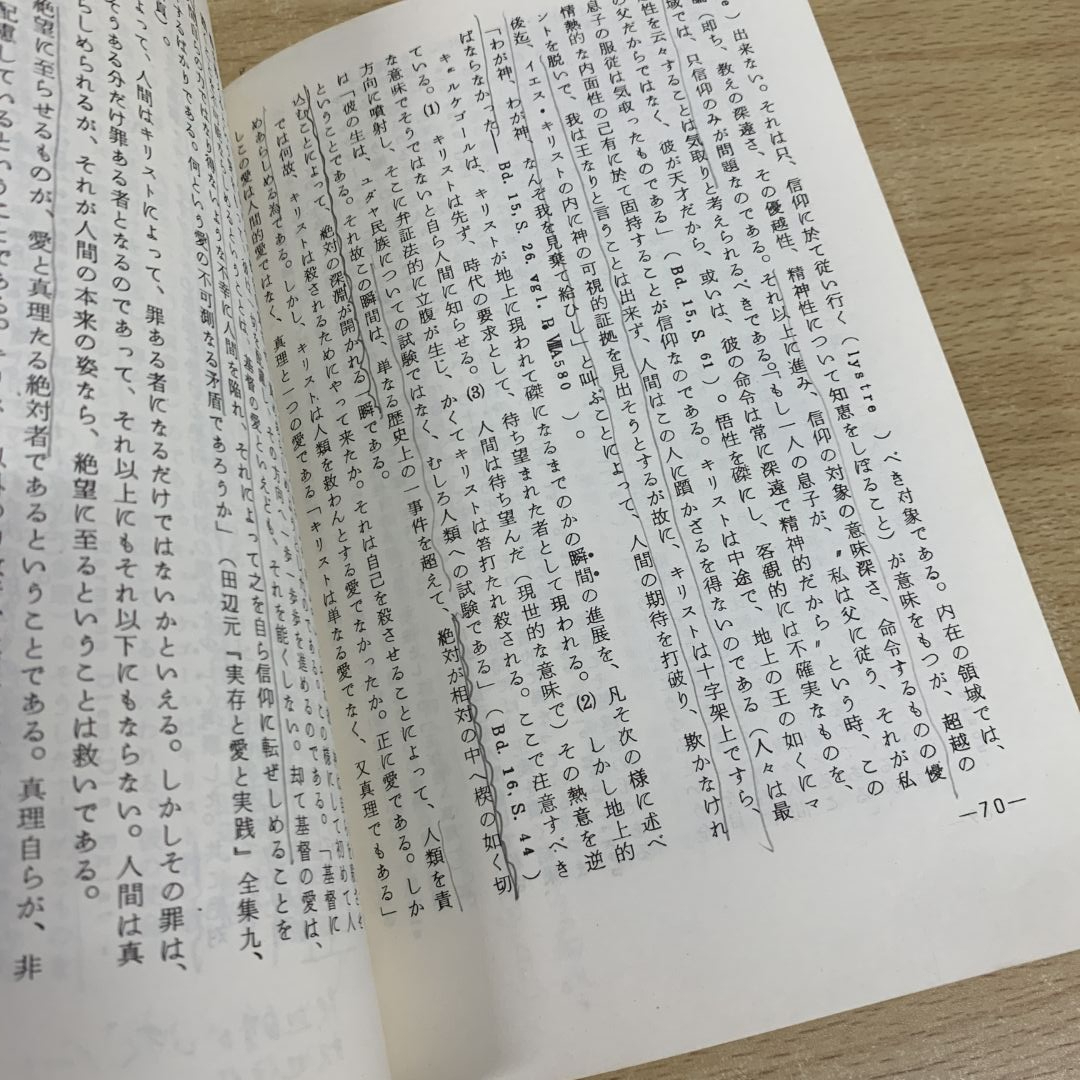 re ) 出来ない。それは只、信仰に於て従い行く ( lystre ) べき対象である。内在の領域では、
(即ち、教えの深遠さ、その優越性、精神性について知恵をしぼること) が意味をもつが、超越の
域では、只信仰のみが問題なのである。それ以上に進み、信仰の対象の意味深さ、命令するものの優
性を云々することは気取りと考えられるべきである。「もし一人の息子が、〝私は父に従う、それが私
の父だからではなく、彼が天才だから、或いは、彼の命令は常に深遠で精神的だから〟という時、この
息子の服従は気取ったものである」 ( Bd. 15. S. 61 ) 。悟性を磔にし、客観的には不確実なものを、
情熱的な内面性の己有に於て固持することが信仰なのである。キリストは中途で、地上の王の如くにマ
ントを脱いで、我は王なりと言うことは出来ず、人間はこの人に躓かざるを得ないのである (人々は最
後迄、イエス・キリストの内に神の可視的証拠を見出そうとするが故に、キリストは十字架上ですら、
「わが神、わが神、なんぞ我を見棄て給ひし」と叫ぶことによって、人間の期待を打破り、欺かなけれ
ばならなかった— Bd. 15. S. 26. vgl. Ⅷ A 580 ) 。
キェルケゴールは、キリストが地上に現われて磔になるまでのかの瞬間の進展を、凡そ次の様に述べ
ている。(1) キリストは先ず、時代の要求として、待ち望まれた者として現われる。(2) しかし地上的
な意味でそうではないと自ら人間に知らせる。(3) 人間は待ち望んだ (現世的な意味で) その熱意を逆
方向に噴射し、そこに弁証法的に立腹が生じ、かくてキリストは笞打たれ殺される。ここで注意すべき
は「彼の生は、ユダヤ民族についての試験ではなく、むしろ人類への試験である」 ( Bd. 16. S. 44 )
ということである。それ故この瞬間は、単なる歴史上の一事件を超えて、絶対が相対の中へ楔の如く切
込むことによって、絶対の深淵が開かれる一瞬である。
では何故、キリストは殺されるためにやって来たか。それは自己を殺させることによって、人類を責
めあらしめる為である。しかし、キリストは人類を救わんとする愛でなかったか。正に愛である。しか
しこの愛は人間的愛ではなく、真理と一つの愛である「キリストは単なる愛でなく、又真理でもある」
—70—
基督の愛といえども、それを能くしない。却て基督の愛は、
不幸に人間を陥れ、それによって之を自ら信仰に転ぜしめることを
するばかりである。何という愛の不可測なる矛盾であろうか」 (田辺元『実存と愛と実践』全集九、
よって、人間はキリストによって、罪ある者になるだけではないかといえる。しかしその罪は、
そうある分だけ罪ある者となるのであって、それ以上にもそれ以下にもならない。人間は真
らしめられるが、それが人間の本来の姿なら、絶望に至るということは救いである。
絶望に至らせるものが、愛と真理たる絶対者であるということである。真理自らが、非